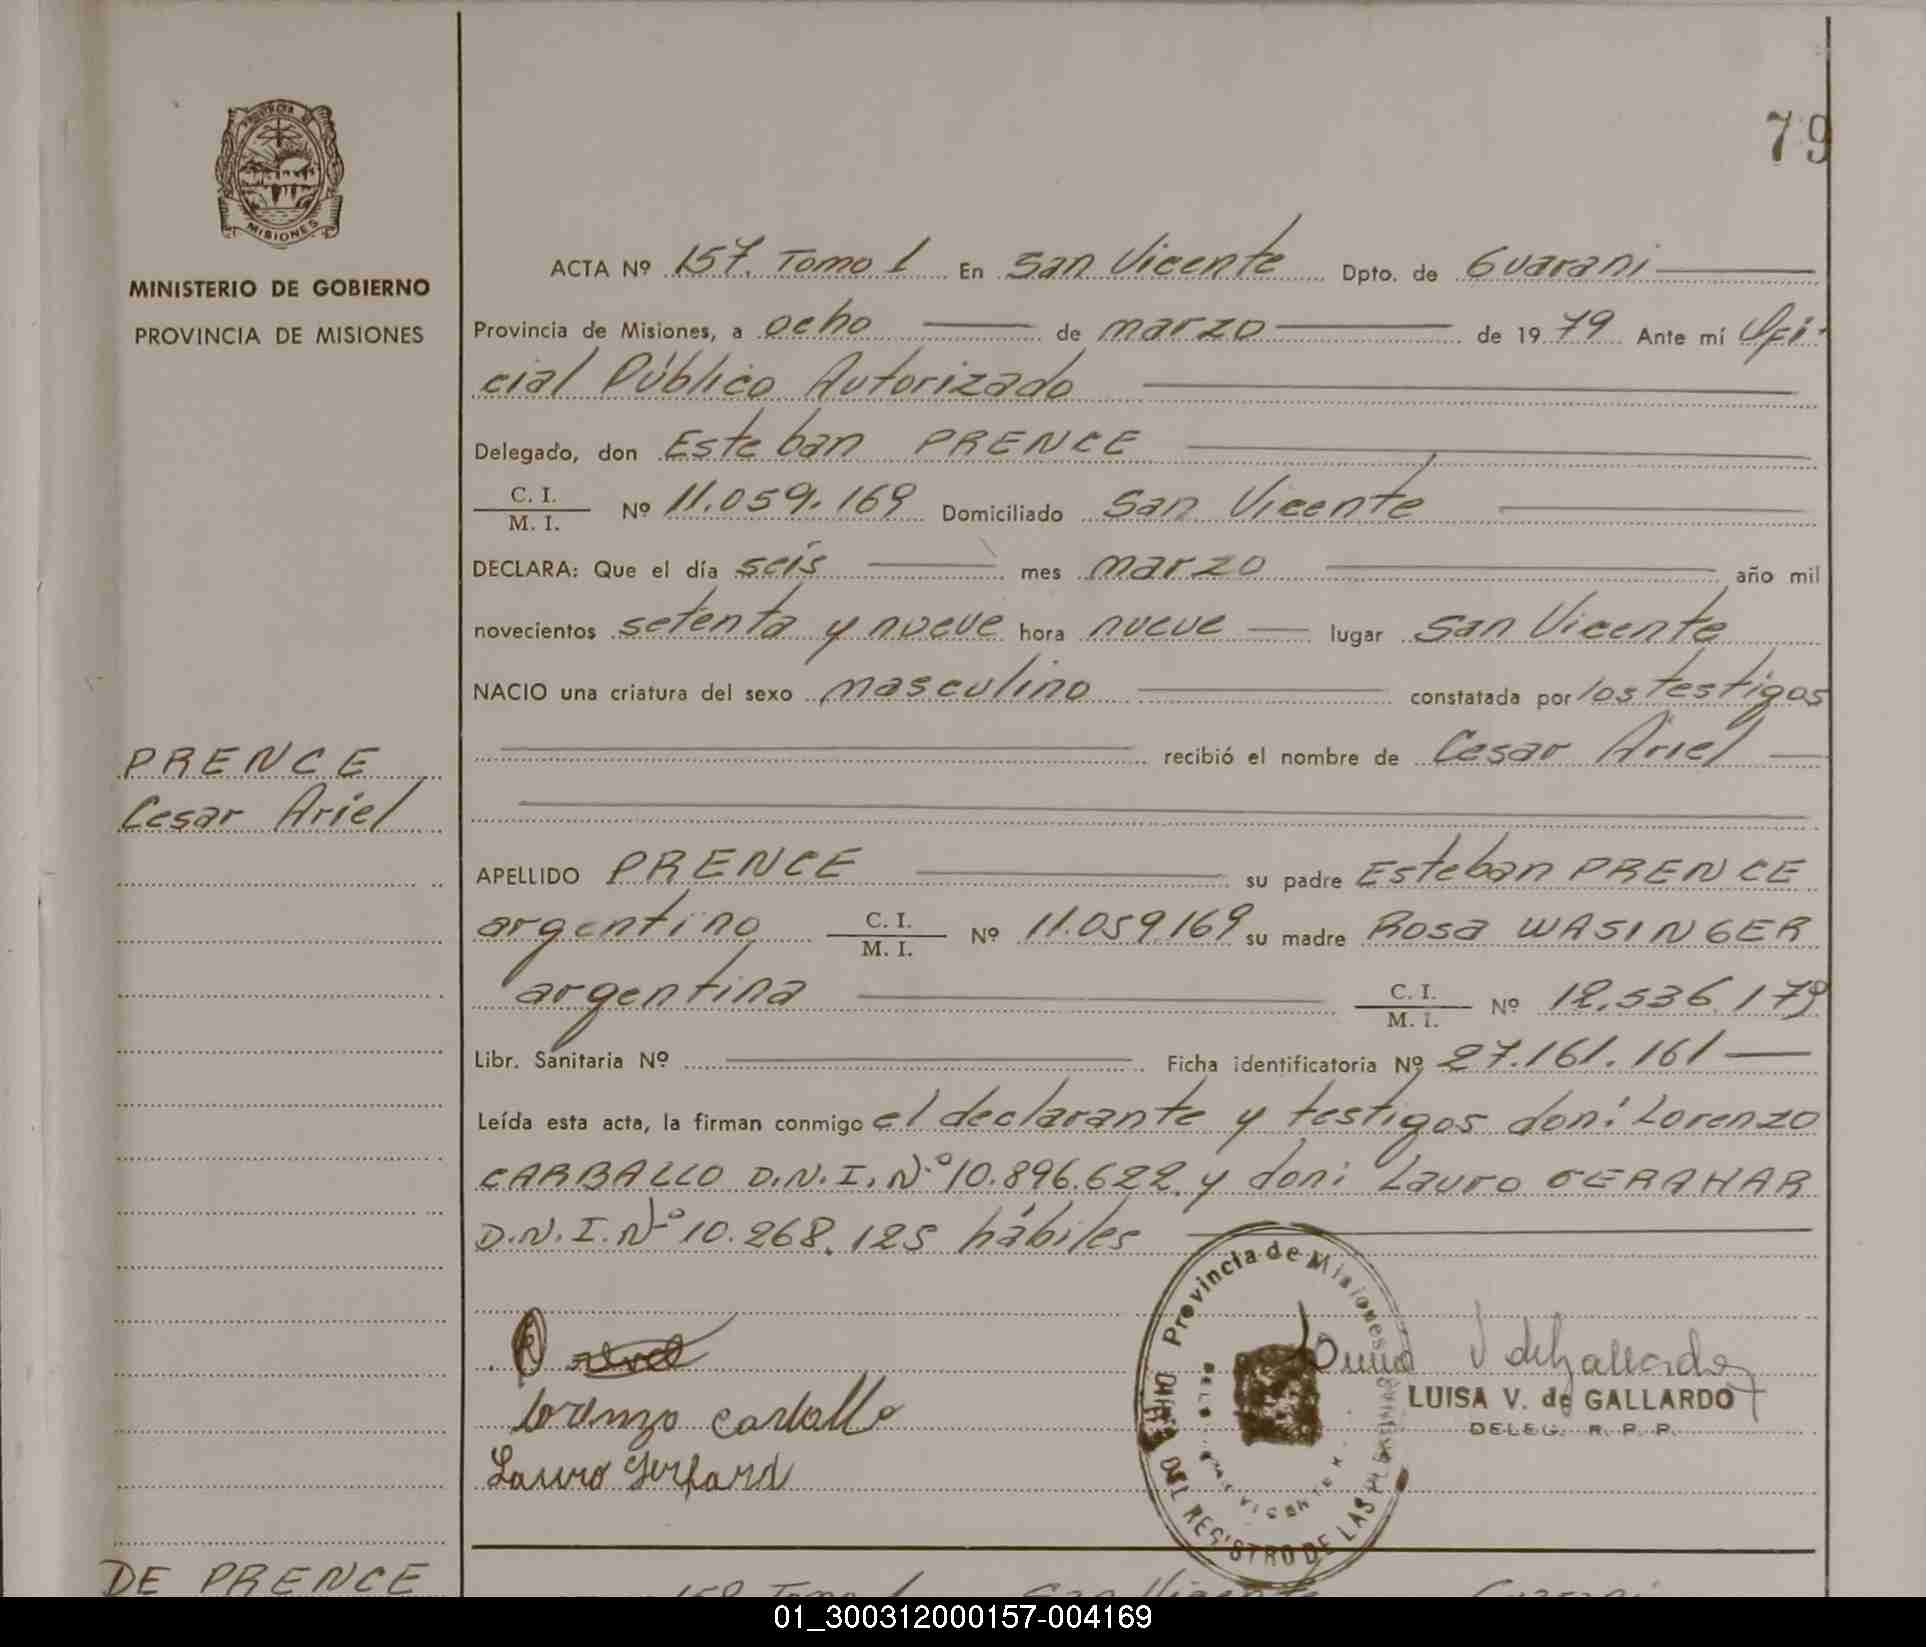 79
PROVINCIA DE
MISIONES
MINISTERIO DE GOBIERNO
PROVINCIA DE MISIONES
ACTA Nº 157. Tomo 1 En San Vicente Dpto. de Guarani
Provincia de Misiones, a ocho de marzo de 1979 Ante mí Ofi-
cial Público Autorizado
Delegado, don Esteban PRENCE
C. I.
M. I. Nº 11.059.169 Domiciliado San Vicente
DECLARA: Que el día seis mes marzo año mil
novecientos setenta y nueve hora nueve lugar San Vicente
NACIO una criatura del sexo masculino constatada por los testigos
recibió el nombre de Cesar Ariel
PRENCE
Cesar Ariel
APELLIDO PRENCE su padre Esteban PRENCE
argentino C. I.
M. I. Nº 11.059.169 su madre Rosa WASINGER
argentina C. I.
M. I. Nº 12.536.179
Libr. Sanitaria Nº Ficha identificatoria Nº 27.161.161
Leída esta acta, la firman conmigo el declarante y testigos don: Lorenzo
CARBALLO D.N.I. Nº 10.896.622. y don: Lauro
D.N.I. Nº 10.268.125 hábiles
Provincia de Misiones
DEL REGISTRO DE LAS
Lorenzo Carballo
Lauro
LUISA V. de GALLARDO
DELEG. R. P. P.
DE PRENCE
158 Tomo 1 San Vicente Guarani
01_300312000157-004169